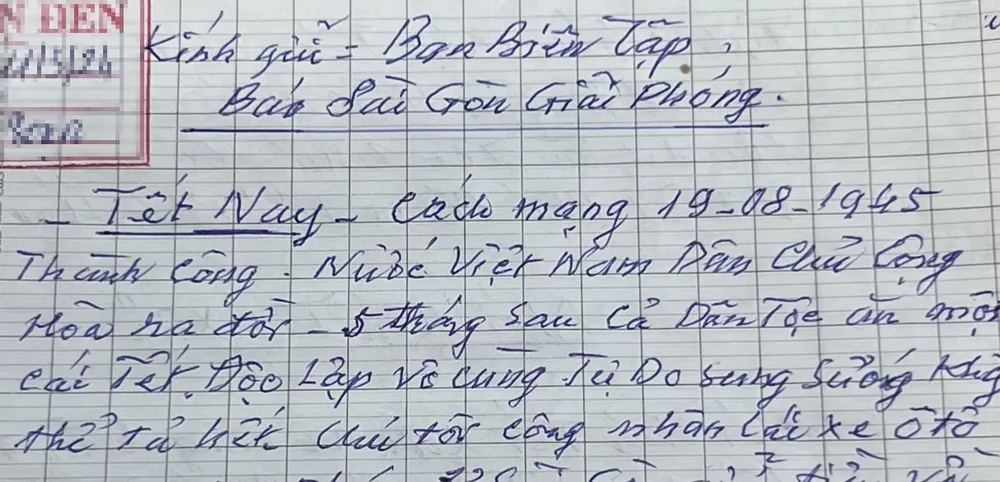 N ĐẾN
Kính gửi - Ban Biên Tập,
Báo Sài Gòn Giải Phóng.
- Tết Nay - Cách mạng 19-08-1945
Thành Công - Nước Việt Nam Dân Chủ Cộng
Hòa ra đời - 5 tháng sau cả Dân Tộc ăn một
cái Tết Độc Lập vô cùng Tự Do sung sướng
thể tả hết công nhân lái xe ôtô